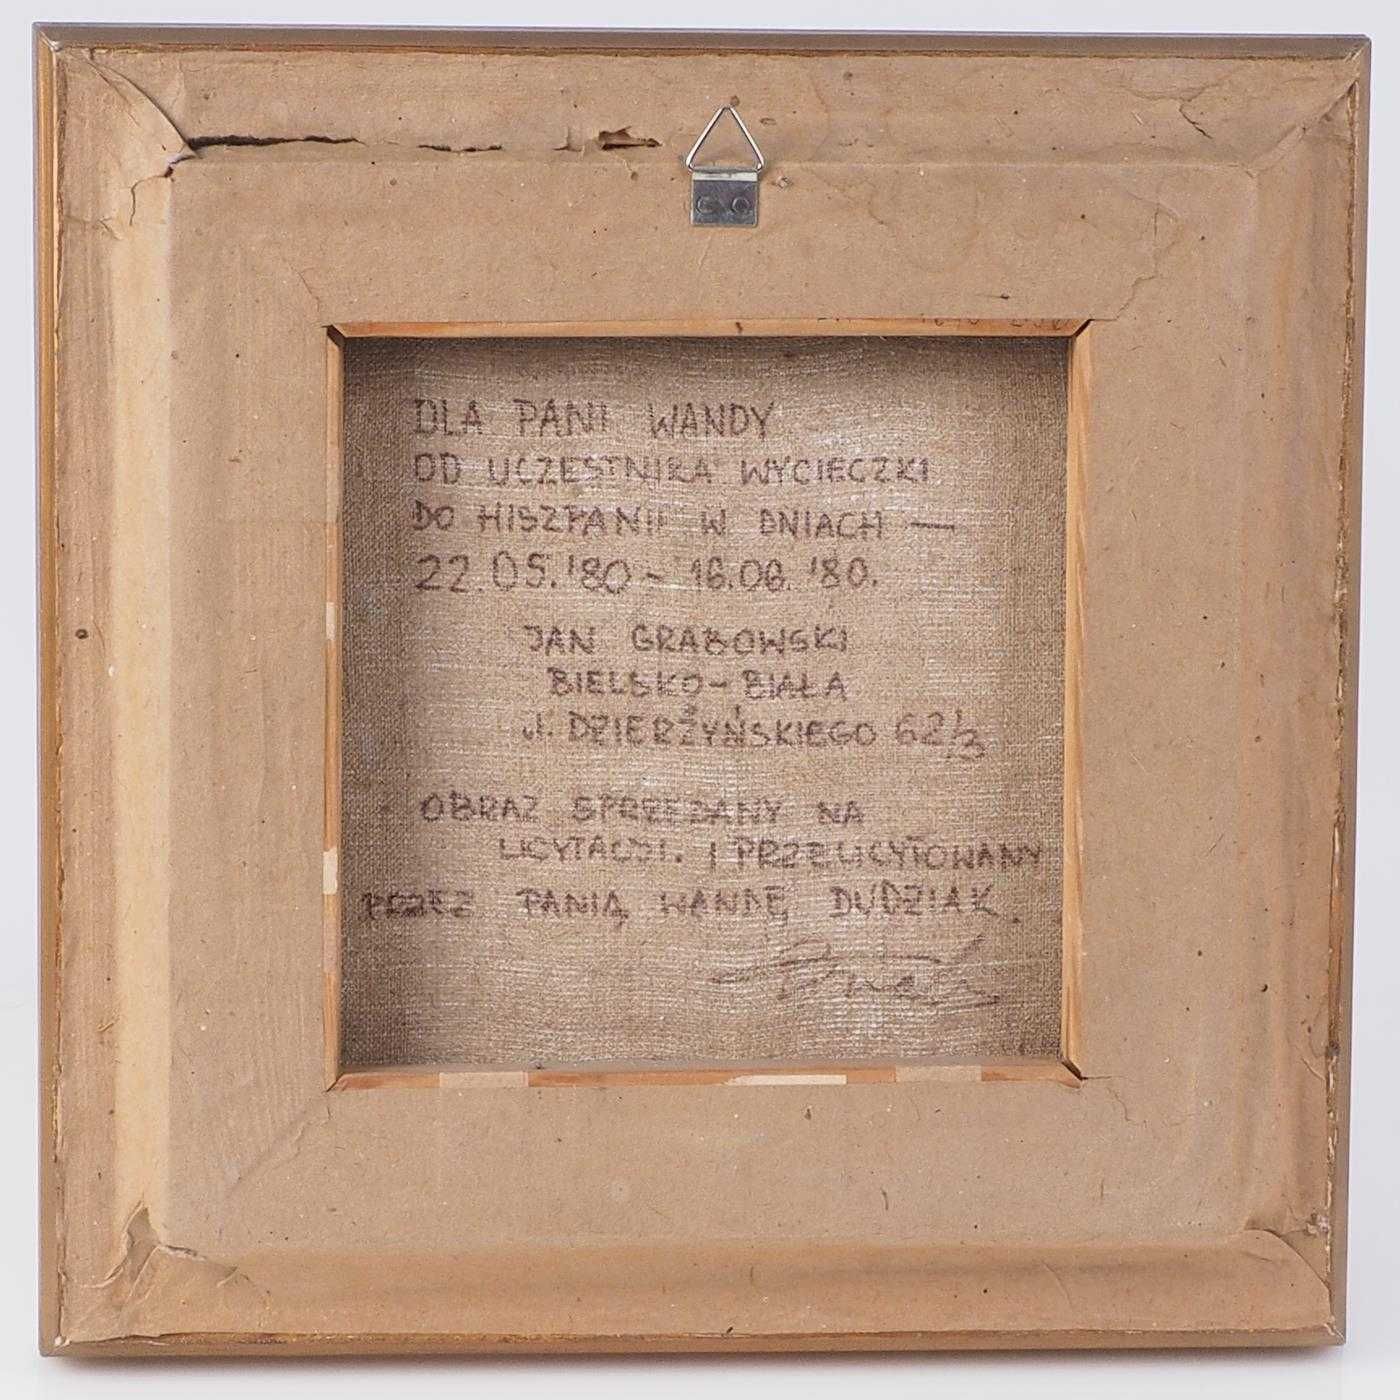 DLA PANI WANDY
OD UCZESTNIKA WYCIECZKI
DO HISZPANII W DNIACH —
22.05.'80 - 16.06.'80.
JAN GRABOWSKI
BIELSKO-BIAŁA
ul. DZIERŻYŃSKIEGO 62/3
OBRAZ SPRZEDANY NA
LICYTACJI. I PRZELICYTOWANY
PRZEZ PANIĄ WANDĘ DUDZIAK.